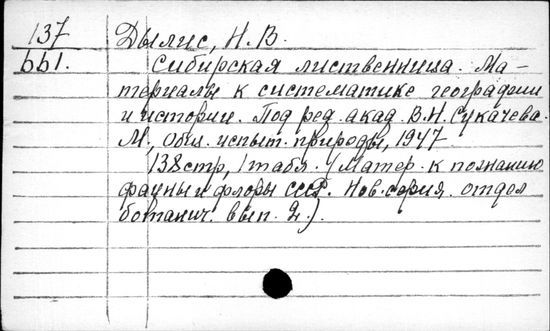 137 Дылис, Н. В.
661. Сибирская лиственница. Ма-
териалы к систематике географии
и истории. Под ред. акад. В. Н. Сукачева.
М., Общ. испыт. природы, 1947
138 стр., 1 табл. (Матер. к познанию
фауны и флоры СССР. Нов. серия. отдел
ботанич. вып. 2.)